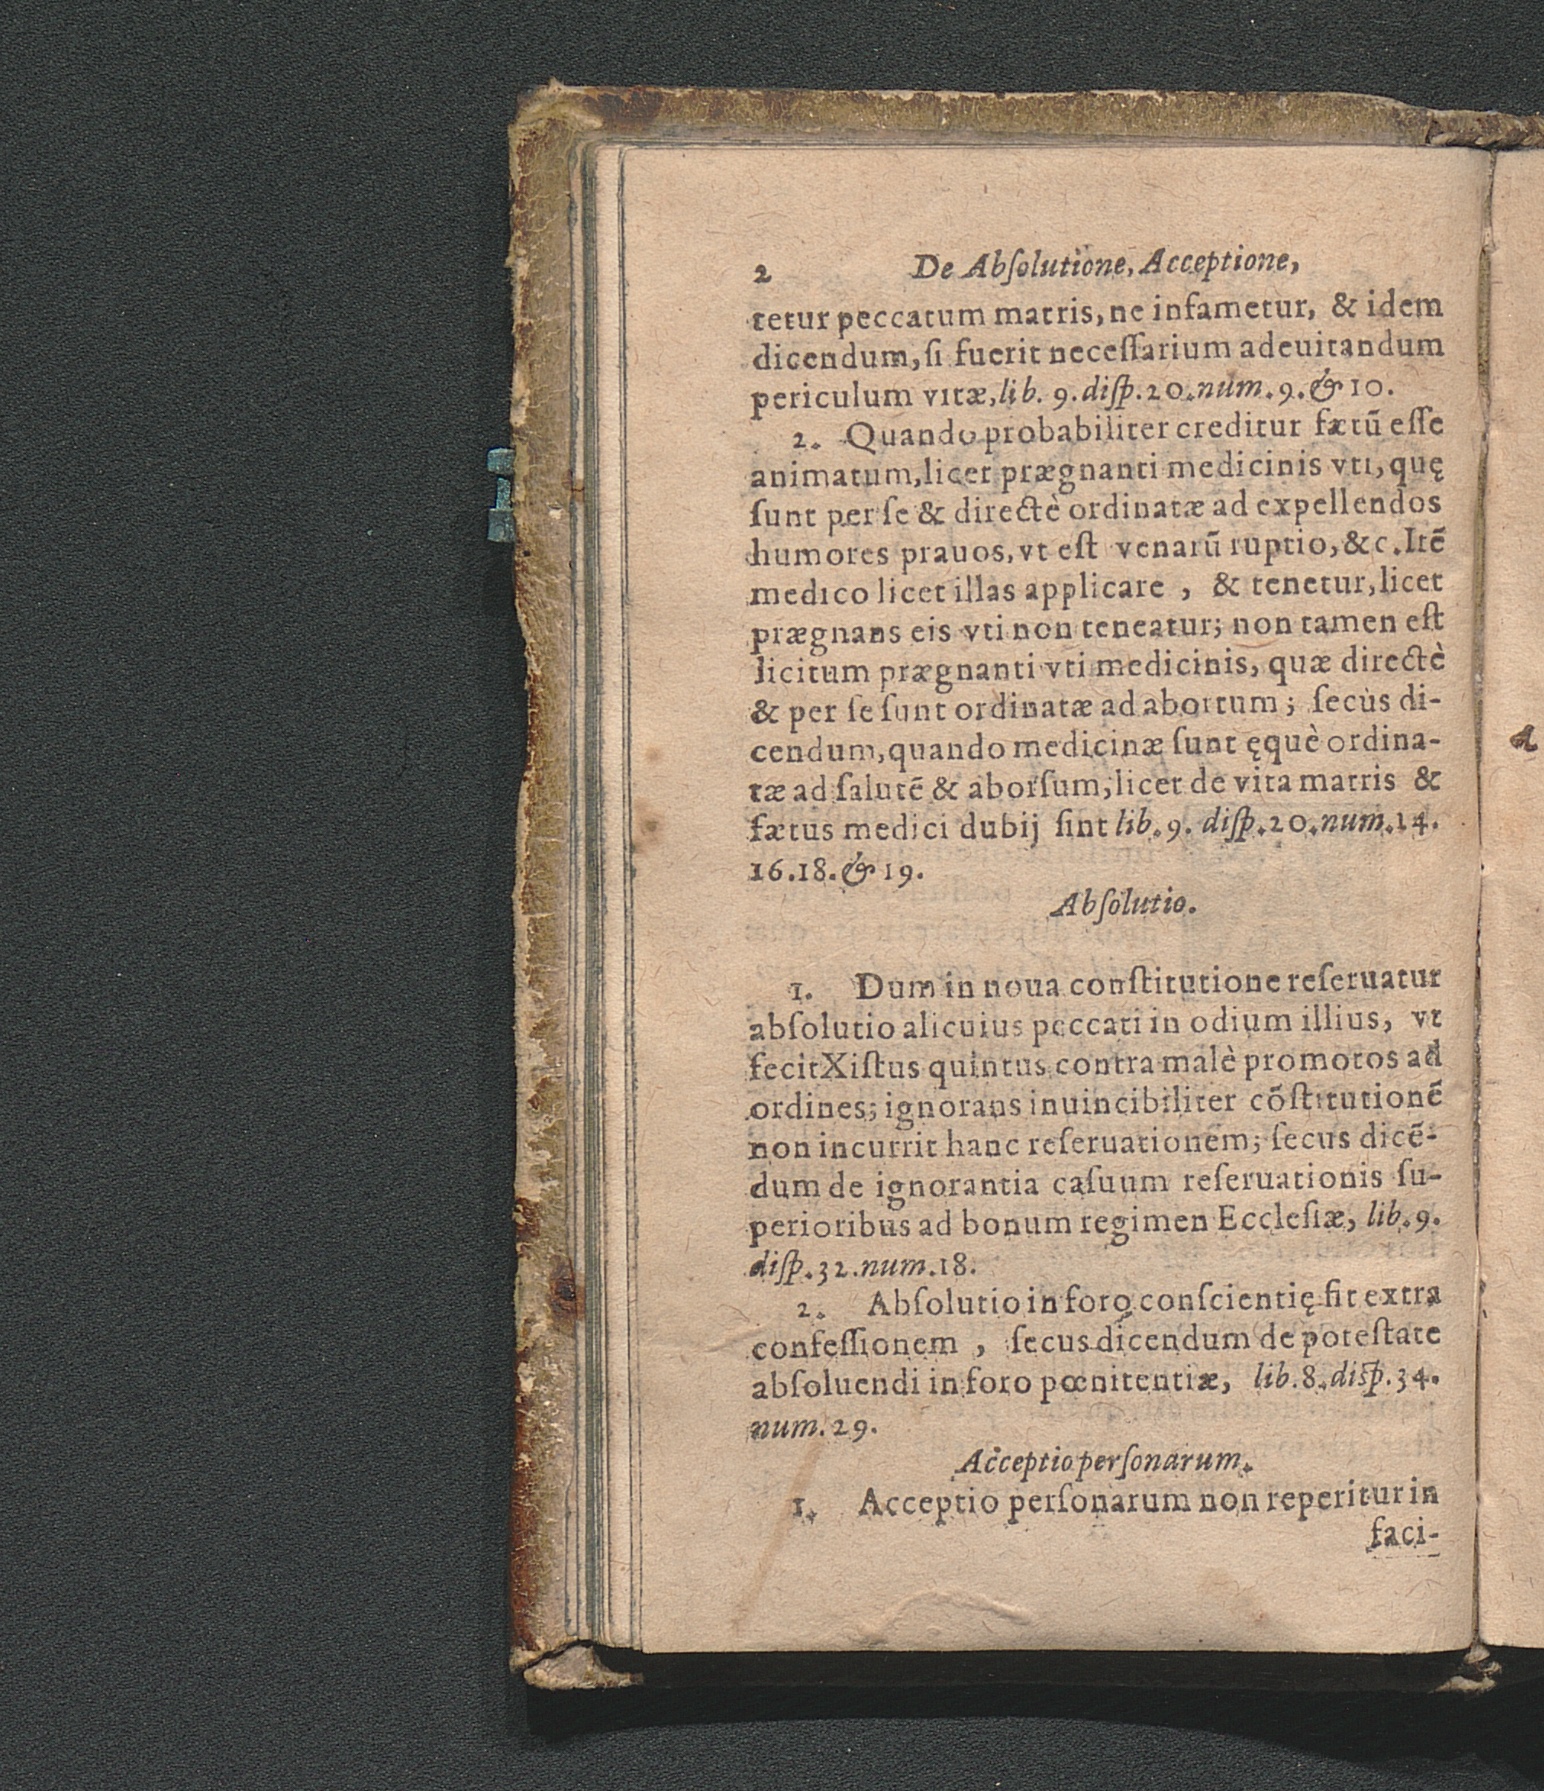 2 De Abſolutione, Acceptione,
tetur peccatum matris, ne infametur, & idem
dicendum, ſi fuerit neceſſarium ad euitandum
periculum vitæ, lib. 9. diſp. 20. num. 9. & 10.
2. Quando probabiliter creditur fætū eſſe
animatum, licet prægnanti medicinis vti, quę
ſunt per ſe & directè ordinatæ ad expellendos
humores prauos, vt eſt venarū ruptio, &c. Itē
medico licet illas applicare , & tenetur, licet
prægnans eis vti non teneatur; non tamen eſt
licitum prægnanti vti medicinis, quæ directè
& per ſe ſunt ordinatæ ad abortum ; ſecùs di-
cendum, quando medicinæ ſunt ęquè ordina-
tæ ad ſalutē & aborſum, licet de vita matris &
fætus medici dubij ſint lib. 9. diſp. 20. num. 14.
16. 18. & 19.
Abſolutio.
1. Dum in noua conſtitutione reſeruatur
abſolutio alicuius peccati in odium illius, vt
fecit Xiſtus quintus contra malè promotos ad
ordines; ignorans inuincibiliter cōſtitutionē
non incurrit hanc reſeruationem; ſecus dicē-
dum de ignorantia caſuum reſeruationis ſu-
perioribus ad bonum regimen Eccleſiæ, lib. 9.
diſp. 32. num. 18.
2. Abſolutio in foro conſcientię fit extra
confeſſionem , ſecus dicendum de poteſtate
abſoluendi in foro pœnitentiæ, lib. 8. diſp. 34.
num. 29.
Acceptio perſonarum.
1. Acceptio perſonarum non reperitur in
faci-